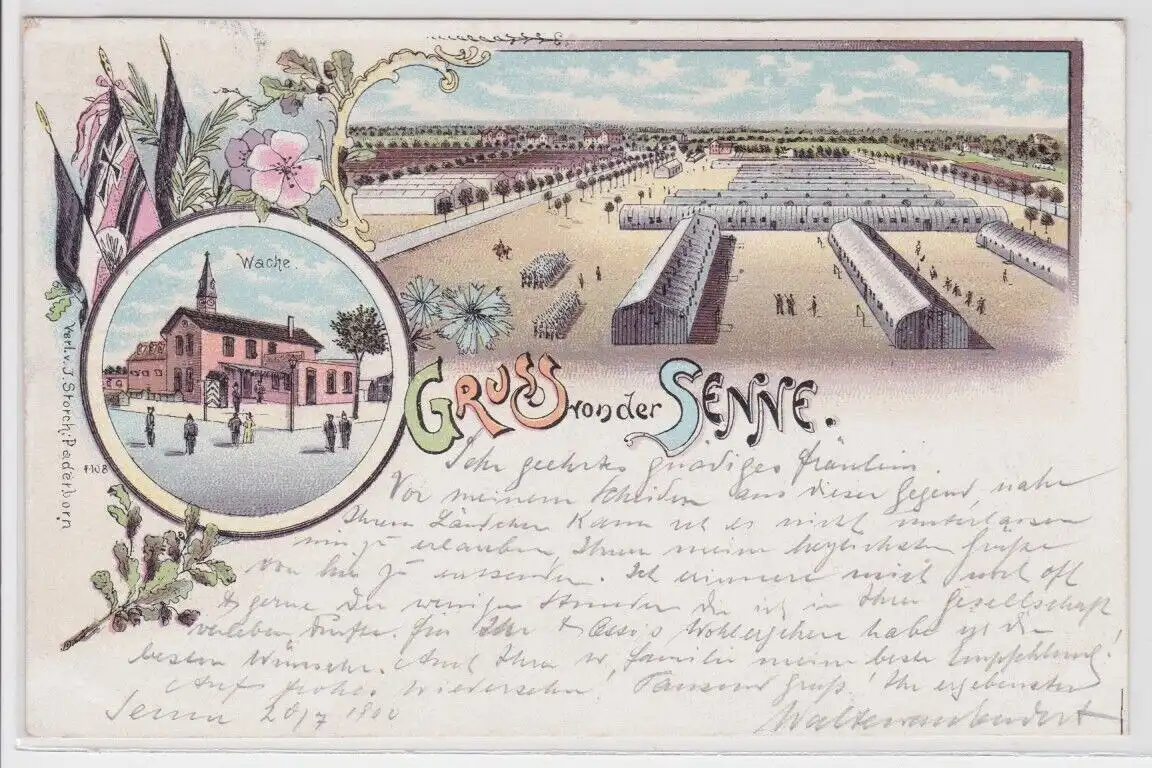 Wache.
GRUSS von der SENNE.
Verl. v. J. Storch, Paderborn
4108
Sehr geehrtes gnädiges Fräulein.
Vor meinem Scheiden aus dieser Gegend, nahe
Ihrem Ländchen kann ich es nicht unterlassen
mir zu erlauben, Ihnen meine herzlichsten Grüße
von hier zu entsenden. Ich erinnere mich noch oft
& gerne der wenigen Stunden die ich in Ihrer Gesellschaft
verleben durfte. Für Ihr & Wohlergehen habe ich die
besten Wünsche. Auch Ihrer w. Familie meine beste Empfehlung!
Auf frohes Wiedersehn! Tausend Grüße! Ihr ergebenster
Senne 28/7 1900